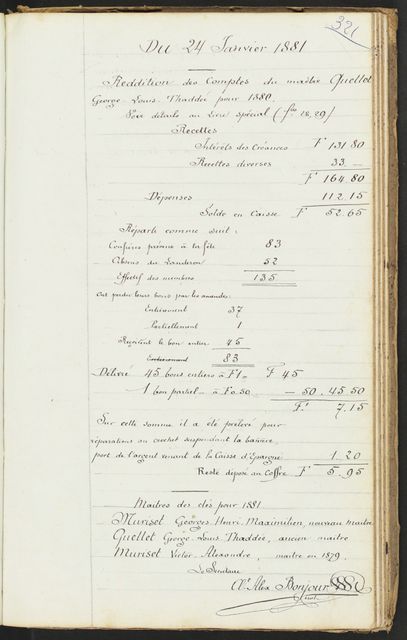 321
Du 24 Janvier 1881
Reddition des Comptes du maître Quellet
George Louis Thaddée pour 1880.
Voir détails au Livre spécial (fos 28, 29)
Recettes
Intérêts des Créances F 131.80
Recettes diverses 33.—
F 164.80
Dépenses 112.15
Solde en Caisse F 52.65
Réparti comme suit:
Confrères présents à la fête 83
Absens du Landeron 52
Effectif des membres 135
ont perdu leurs bons par les amendes:
Entièrement 37
Partiellement 1
Reçoivent le bon entier 45
Entièrement 83
Délivré 45 bons entiers à F1.— F 45
1 bon partiel — à F0.50 — 50. 45.50
F. 7.15
Sur cette somme il a été prélevé pour
réparations au crochet suspendant la bannière,
port de l'argent venant de la Caisse d'Epargne 1.20
Reste déposé au Coffre F 5.95
Maîtres des clés pour 1881
Muriset Georges-Henri-Maximilien, nouveau maître
Quellet George-Louis-Thaddée, ancien maître
Muriset Victor-Alexandre, maître en 1879.
Le Secrétaire
Alex Bonjour
not.